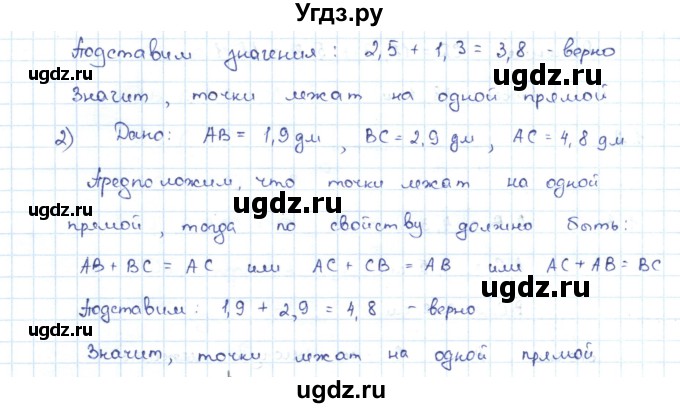 Угдз.ру
Подставим значения: 2,5 + 1,3 = 3,8 - верно
Значит, точки лежат на одной прямой
2) Дано: AB = 1,9 дм, BC = 2,9 дм, AC = 4,8 дм
Предположим, что точки лежат на одной
прямой, тогда по свойству должно быть:
AB + BC = AC или AC + CB = AB или AC + AB = BC
Подставим: 1,9 + 2,9 = 4,8 - верно
Значит, точки лежат на одной прямой
ugdz.ru
ugdz.ru
ugdz.ru
ugdz.ru
ugdz.ru
ugdz.ru
ugdz.ru
ugdz.ru
ugdz.ru